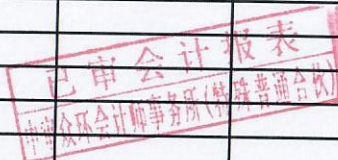 已审会计报表
中审众环会计师事务所(特殊普通合伙)